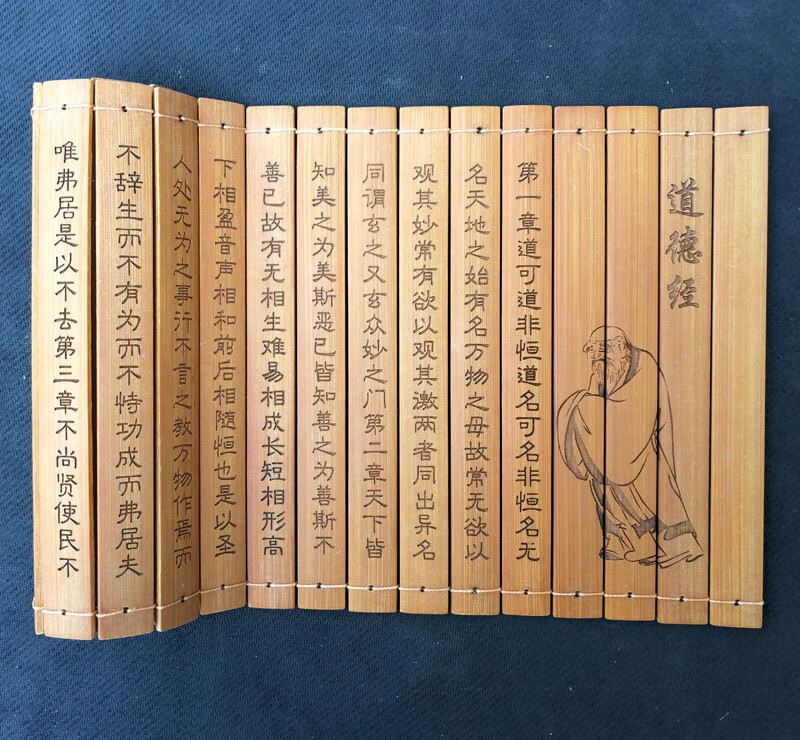 道德经
第一章道可道非恒道名可名非恒名无
名天地之始有名万物之母故常无欲以
观其妙常有欲以观其激两者同出异名
同谓玄之又玄众妙之门第二章天下皆
知美之为美斯恶已皆知善之为善斯不
善已故有无相生难易相成长短相形高
下相盈音声相和前后相随恒也是以圣
人处无为之事行不言之教万物作焉而
不辞生而不有为而不恃功成而弗居夫
唯弗居是以不去第三章不尚贤使民不